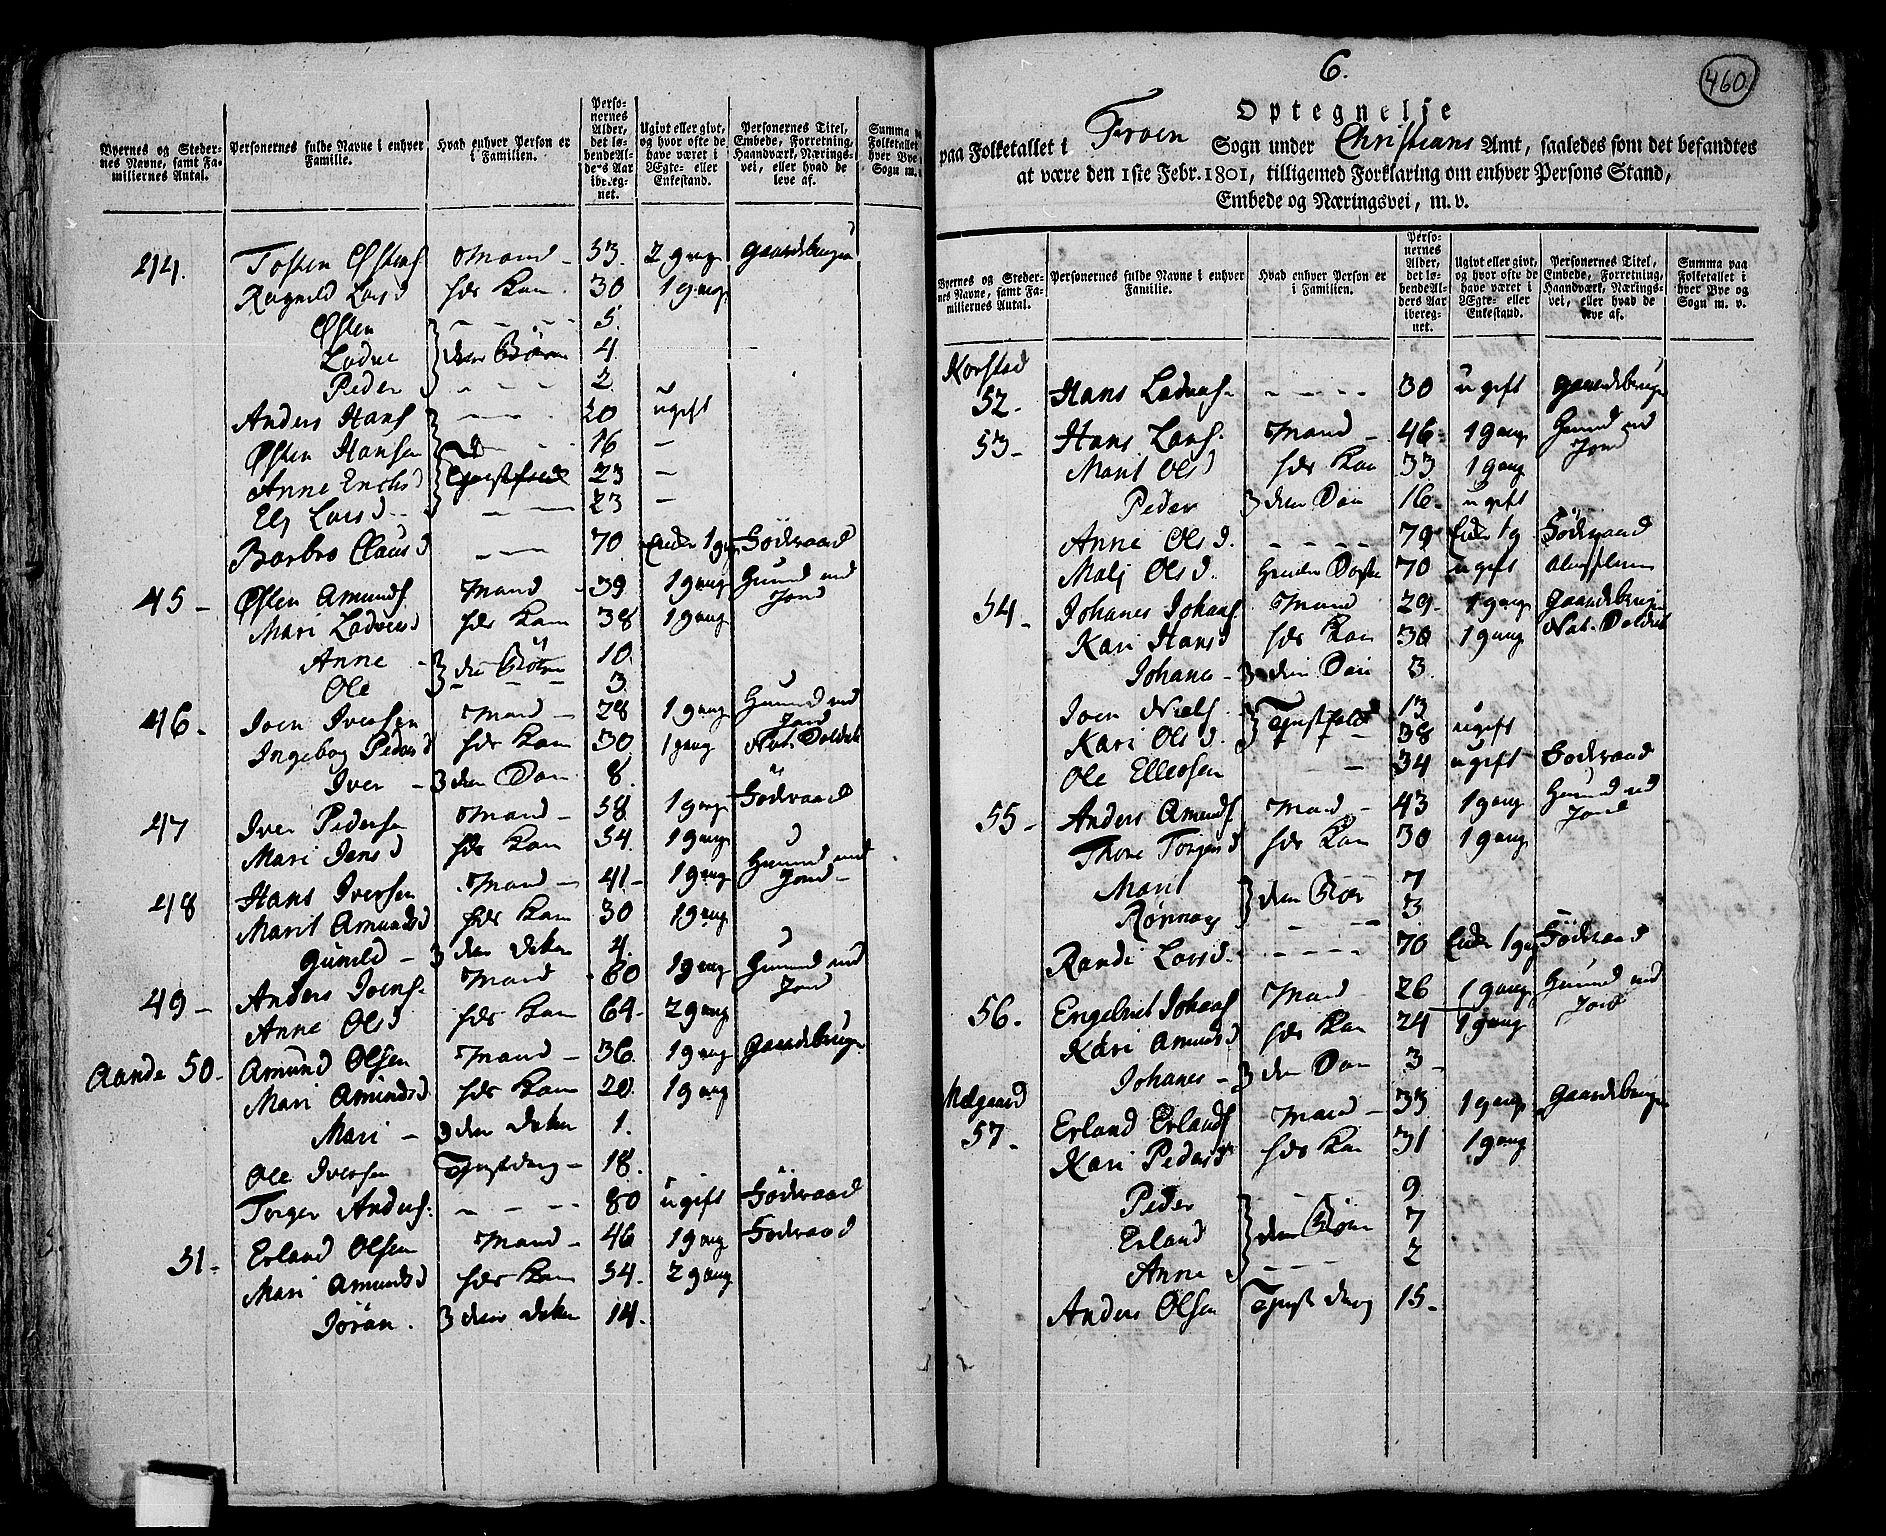 Byernes og Steder-
nes Navne, samt Fa-
miliernes Antal.
Personernes fulde Navne i enhver
Familie.
Hvad enhver Person er
i Familien.
Perso-
nernes
Alder,
det lø-
bende Al-
ders Aar
ibereg-
net.
Ugivt eller givt,
og hvor ofte de
have været i
Ægte- eller
Enkestand.
Personernes Titel,
Embede, Forretning,
Haandværk, Nærings-
vei, eller hvad de
leve af.
Summa
Folketallet
hver Bye
Sogn m.
44. Tosten Østens Mand - 53. 2 gang gaardbruger
Ragnild Larsd hds Kone 30 1 gang
Østen - - - 5.
Ladue deres Børn 4
Peder - - - 2
Anders Hans - - 20 ugift
Østen Hansen 16 -
Anne Erichsd Tjenstfolk 23 -
Elj Larsd - - 23 -
Barbro Clausd - - 70 Enke 1 gang Föderaad
45 - Østen Amunds Mand - 39 1 gang Huusmd med
Jord
Mari Laduesd hds Kone 38 1 gang
Anne - deres Børn 10
Ole - - - 3
46 - Joen Iversen Mand - 28 1 gang Huusmd med
Jord
Ingebog Pedersd hds Kone 30 1 gang Nat. Soldat
Iver - deres Søn 8
47 Iver Pedersen Mand - 58 1 gang Föderaad
Mari Jensd hds Kone 54 1 gang
48 Hans Iversen Mand - 41 - 1 gang Huusmd med
Jord -
Marit Amundsd hds Kone 30 1 gang
Gunild - deres datter 4
49 - Anders Joens. Mand 60 1 gang Huusmd med
Jord
Anne Olsd hds Kone 64. 2 gang
Aande 50. Amund Olsen Mand - 36. 1 gang gaardbruger
Mari Amundsd hds Kone 20. 1 gang
Mari - deres datter 1.
Ole Iversen Tjenstdreng - 18.
Torger Anders. - - - 80 ugift Föderaad
51. Erland Olsen Mand - 46 1 gang Föderaad
Mari Amundsd hds Kone 54. 2 gang
Jöran. deres datter 14.
6.
460
Optegnelse
paa Folketallet i Froen Sogn under Christians Amt, saaledes som det befandtes
at være den 1ste Febr. 1801, tilligemed Forklaring om enhver Persons Stand,
Embede og Næringsvei, m. v.
Byernes og Steder-
nes Navne, samt Fa-
miliernes Antal.
Personernes fulde Navne i enhver
Familie.
Hvad enhver Person er
i Familien.
Perso-
nernes
Alder,
det lø-
bende Al-
ders Aar
ibereg-
net.
Ugivt eller givt,
og hvor ofte de
have været i
Ægte- eller
Enkestand.
Personernes Titel,
Embede, Forretning,
Haandværk, Nærings-
vei, eller hvad de
leve af.
Summa paa
Folketallet i
hver Bye og
Sogn m. v.
Korstad
52 - Hans Laduas. - - - - 30 ugift gaardbruger
53 - Hans Lars. Mand - 46 1 gang Huusmd md
Jord
Marit Olsd hds Kone 33 1 gang
Peder deres Søn 16. ugift
Anne Olsd. - - - - 79 Enke 1 g Föderaad
Malj Olsd. 70 ugift
54 - Johanes Johans Mand 29. 1 gang gaardbruger
Kari Hansd hds Kone 30 1 gang Nat. Soldat
Johanes - deres Søn 3.
Joen Niels. 13
Kari Olsd. Tjenstfolk 38 ugift
Ole Ellevsen - 34 ugift Föderaad
55 - Anders Amunds Mand - 43 1 gang Huusmd md
Jord
Thore Torgersd hds Kone 30 1 gang
Marit deres Børn 7
Rønnoy 3
Randi Larsd. - - - - 70 Enke 1 gang Föderaad
56. Engebret Johans Mand 26 1 gang Huusmd md
Jord
Kari Amundsd hds Kone 24 1 gang
Johanes - deres Søn 3
Melgaard
57 - Erland Erlands Mand - 33 1 gang gaardbruger
Kari Pedersd hds Kone 31 1 gang
Peder - 9
Erland deres Børn 7
Anne - - - 2
Anders Olsen Tjenst dreng 15.